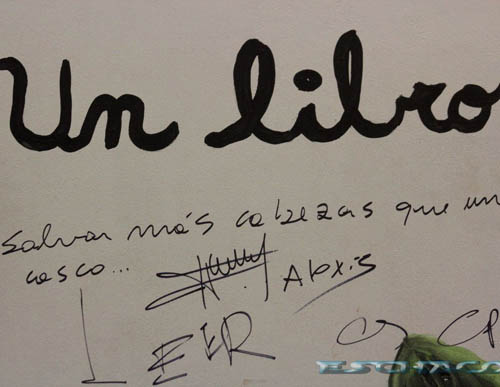 Un libro
salvar más cabezas que un
casco...
Alexis
LEER